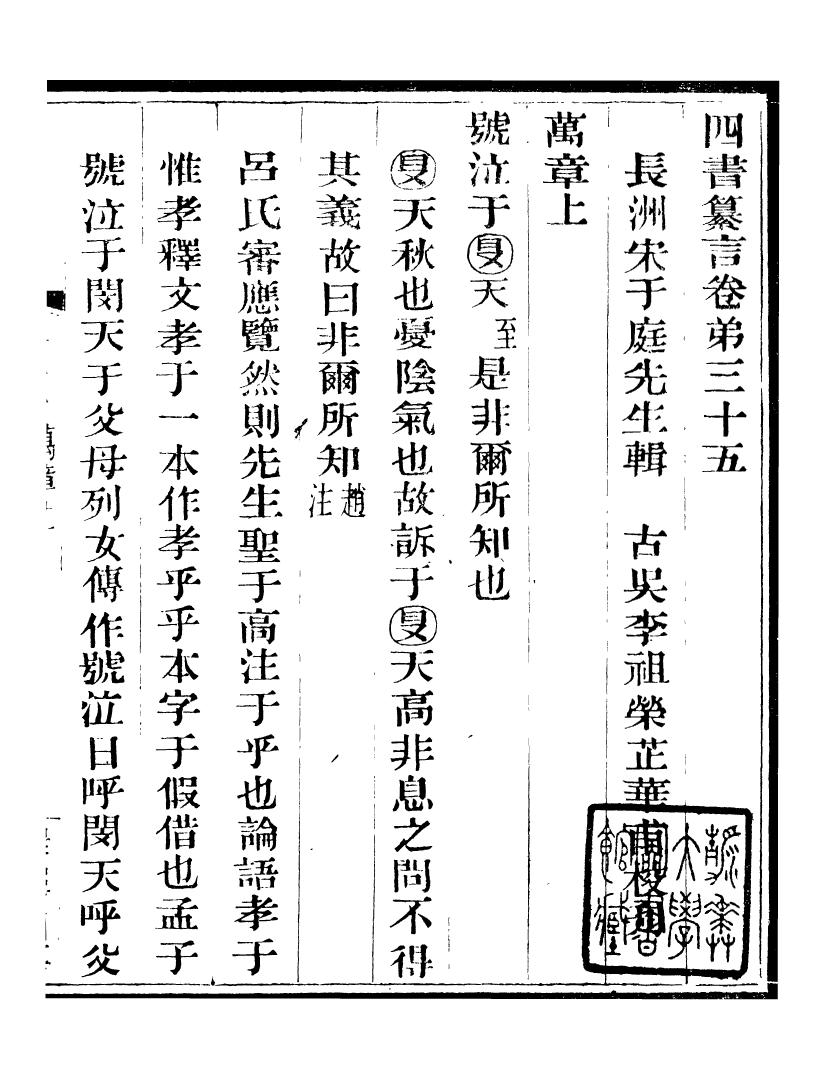 四書纂言卷弟三十五
長洲宋于庭先生輯　古吳李祖榮芷華甫校
萬章上
號泣于旻天至是非爾所知也
旻天秋也憂陰氣也故訴于旻天高非息之問不得
其義故曰非爾所知趙注
呂氏審應覽然則先生聖于高注于乎也論語孝于
惟孝釋文孝于一本作孝乎乎本字于假借也孟子
號泣于閔天于父母列女傳作號泣日呼閔天呼父
大學